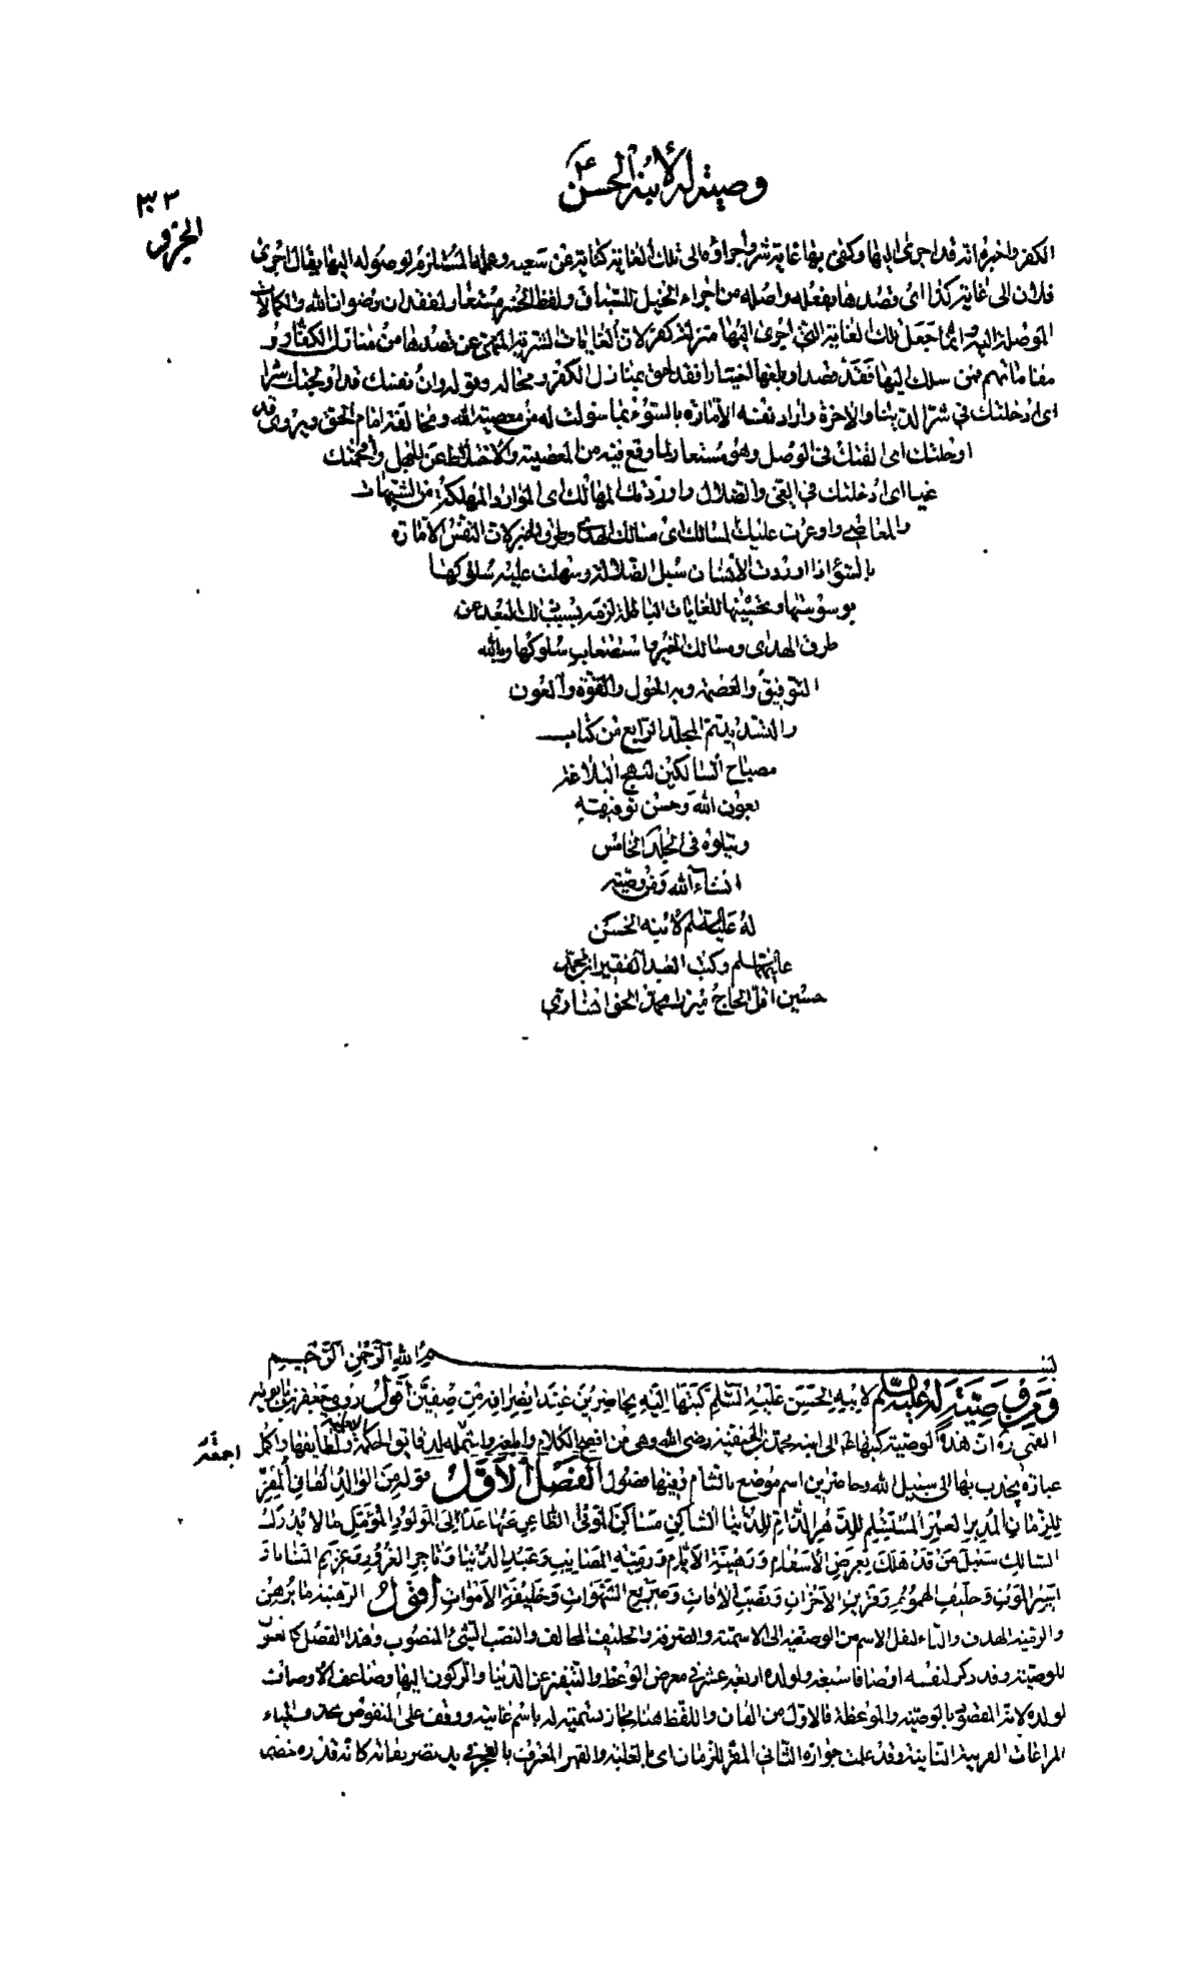 وصيته له لأبنه الحسن ع
٣٠٣
الجزء
الكفر واخبره انه قد اجرى اليها وكفى بها غاية شر واجراؤه الى تلك الغاية كناية عن سعيه وعمله المستلزم لوصوله اليها يقال اجرى
فلان الى غاية كذا اى قصدها بفعله واصله من اجراء الخيل للسباق ولفظ الخسر مستعار لفقدان رضوان الله والكمالات
الموصلة اليه وانما جعل تلك الغاية التى اجرى اليها منزلة كفر لان الغايات الشرية المنهى عن قصدها من منازل الكفار و
مقاماتهم فمن سلك اليها قصدا وبلغها اختيارا فقد لحق بمنازل الكفر ومحاله وقوله وان نفسك قد اولجتك شرا
اى ادخلتك فى شر الدنيا والاخرة واراد نفسه الامارة بالسوء بما سولت له من معصية الله ومخالفة امام الحق ويروى قد
اوحلتك اى القتك فى الوحل وهو مستعار لما وقع فيه من المعصية والاختلاط عن الجهل واقحمتك
غيا اى ادخلتك فى الغى والضلال واوردتك المهالك اى الموارد المهلكة من الشبهات
والمعاصى واوعرت عليك المسالك اى مسالك الهدى وطرق الخير لان النفس الامارة
بالسوء اذا اوردت الانسان سبل الضلالة وسهلت عليه سلوكها
بوسوستها وتحسينها للغايات الباطلة لزمه بسبب ذلك البعد عن
طرق الهدى ومسالك الخير واستصعاب سلوكها وبالله
التوفيق والعصمة وبه الحول والقوة والعون
والتسديد تم المجلد الرابع من كتاب
مصباح السالكين لنهج البلاغة
بعون الله وحسن توفيقه
ويتلوه فى الجلد الخامس
انشاء الله ومن وصيته
له عليه السلم لابنه الحسن
عليهما السلم وكتب العبد الفقير ابن محمد
حسين اقل الحاج ميرزا محمد الخوانسارى
بسم الله الرحمن الرحيم
ومن وصية له عليه السلم لابنه الحسن عليه السلم كتبها اليه بحاضرين عند انصرافه من صفين اقول روى جعفر بن بابويه
القمى ره ان هذه الوصية كتبها الى ابنه محمد بن الحنفية رضى الله وهى من افصح الكلام وابلغه واشمله لدقائق الحكمة العملية ولطايفها واكمل
عبارة يجذب بها الى سبيل الله وحاضرين اسم موضع بالشام وفيها فصول الفصل الاول قوله من الوالد الفانى المقر
للزمان المدبر العمر المستسلم للدهر الذام للدنيا الساكن مساكن الموتى الظاعن عنها غدا الى المولود المؤمل ما لا يدرك
السالك سبيل من قد هلك غرض الاسقام ورهينة الايام ورمية المصايب وعبد الدنيا وتاجر الغرور وغريم المنايا و
اسير الموت وحليف الهموم وقرين الاحزان ونصب الافات وصريع الشهوات وخليفة الاموات اقول الرهينة ما يرهن
والرمية الهدف والتاء لنقل الاسم من الوصفية الى الاسمية والحليف المحالف والنصب الشىء المنصوب وهذا الفصل كالعنوان
للوصية وقد ذكر لنفسه اوصافا سبعة ولولده اربعة عشر فى معرض الوعظ والتنفير عن الدنيا والركون اليها وضاعف الاوصاف
لولده لانه المقصود بالوصية والموعظة فالاول من الفان واللفظ هنا مجاز تسميته له باسم غايته ووقف على المنقوص بحذف الياء
لمراعات القرينة الثانية وقد علمت جوازه الثانى المقر للزمان اى بالغلبة والقهر المعترف بالعجز فى يد تصريفاته كانه قدره خصم